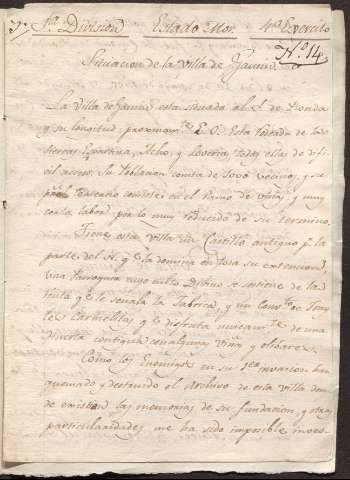 Division Estado Mor. 4º Exercito
Nº 14
Situacion de la Villa de Gaucin.
La Villa de Gaucin esta situada al S. de Ronda
y su longitud proximam.te E. O. Esta rodeada de las
sierras Espartina, Acho, y todas ellas de difi
cil acceso. Su Poblacion consta de 1000 vecinos, y su
consiste en el Ramo de viñas y muy
corta labor por lo muy reducido de su termino.
Tiene esta villa un Castillo antiguo p.r la
parte del N. q.e la domina en toda su extencion,
una Parroquia cuyo culto Divino se sostiene de la
renta q.e le señala la Fabrica, y un Conv.to de Fray
les Carmelitas, q.e disfruta unicam.te de una
Huerta contigua con algunas viñas y olivares.
Como los Enemigos en su invacion han
quemado y destruido el Archivo de esta villa don
de existian las memorias de su fundacion, y otras
particularidades me ha sido imposible inves-